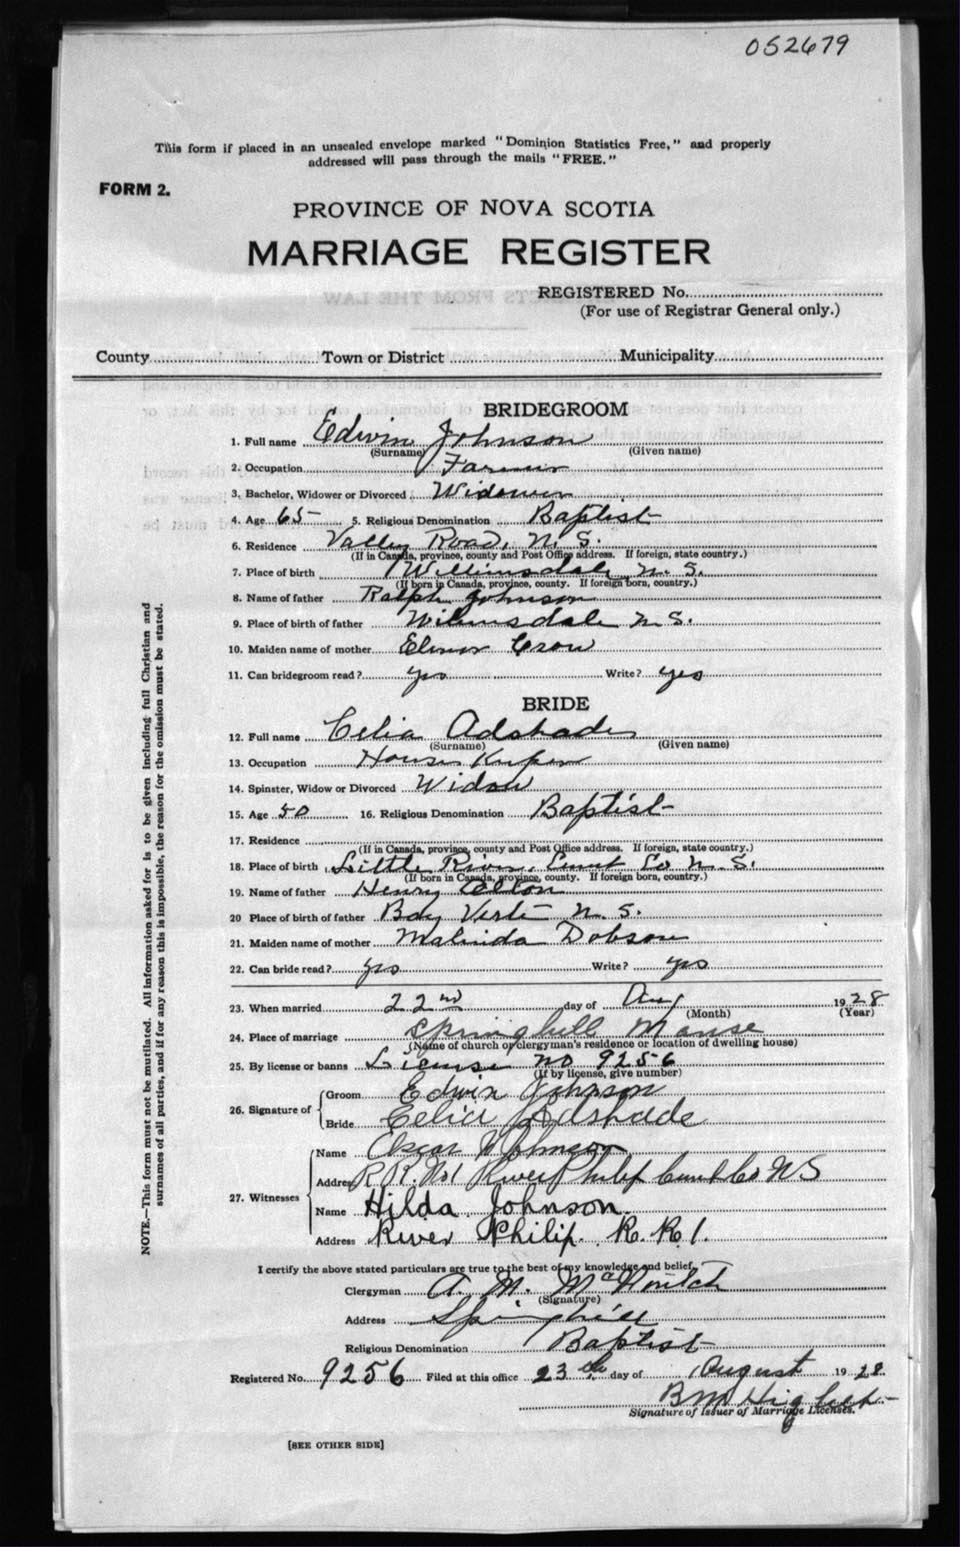 052679
This form if placed in an unsealed envelope marked "Dominion Statistics Free," and properly
addressed will pass through the mails "FREE."
FORM 2.
PROVINCE OF NOVA SCOTIA
MARRIAGE REGISTER
REGISTERED No.
(For use of Registrar General only.)
County Town or District Municipality
BRIDEGROOM
1. Full name Edwin Johnson
(Surname) (Given name)
2. Occupation Farmer
3. Bachelor, Widower or Divorced Widower
4. Age 65 5. Religious Denomination Baptist
6. Residence Valley Road, N. S.
(If in Canada, province, county and Post Office address. If foreign, state country.)
7. Place of birth Williamsdale N. S.
(If born in Canada, province, county. If foreign born, country.)
8. Name of father Ralph Johnson
9. Place of birth of father Williamsdale N S.
10. Maiden name of mother Crow
11. Can bridegroom read? yes Write? yes
BRIDE
12. Full name Celia Adshade
(Surname) (Given name)
13. Occupation House Keeper
14. Spinster, Widow or Divorced Widow
15. Age 50 16. Religious Denomination Baptist
17. Residence
(If in Canada, province, county and Post Office address. If foreign, state country.)
18. Place of birth Little River, Co N. S.
(If born in Canada, province, county. If foreign born, country.)
19. Name of father Henry
20 Place of birth of father Bay Verte N. S.
21. Maiden name of mother Malinda Dobson
22. Can bride read? yes Write? yes
23. When married 22nd day of Aug 1928
(Month) (Year)
24. Place of marriage Springhill Manse
(Name of church or clergyman's residence or location of dwelling house)
25. By license or banns License no 9256
(If by license, give number)
26. Signature of Groom Edwin Johnson
Bride Celia Adshade
27. Witnesses
Name Johnson
Address R R. No 1 River Philip Cumb Co N S
Name Hilda Johnson.
Address River Philip. R. R. 1.
I certify the above stated particulars are true to the best of my knowledge and belief,
Clergyman A. M.
(Signature)
Address Springhill
Religious Denomination Baptist
Registered No. 9256 Filed at this office 23 day of August 1928
B M
Signature of Issuer of Marriage Licenses.
[SEE OTHER SIDE]
NOTE.—This form must not be mutilated. All information asked for is to be given including full Christian and
surnames of all parties, and if for any reason this is impossible, the reason for the omission must be stated.